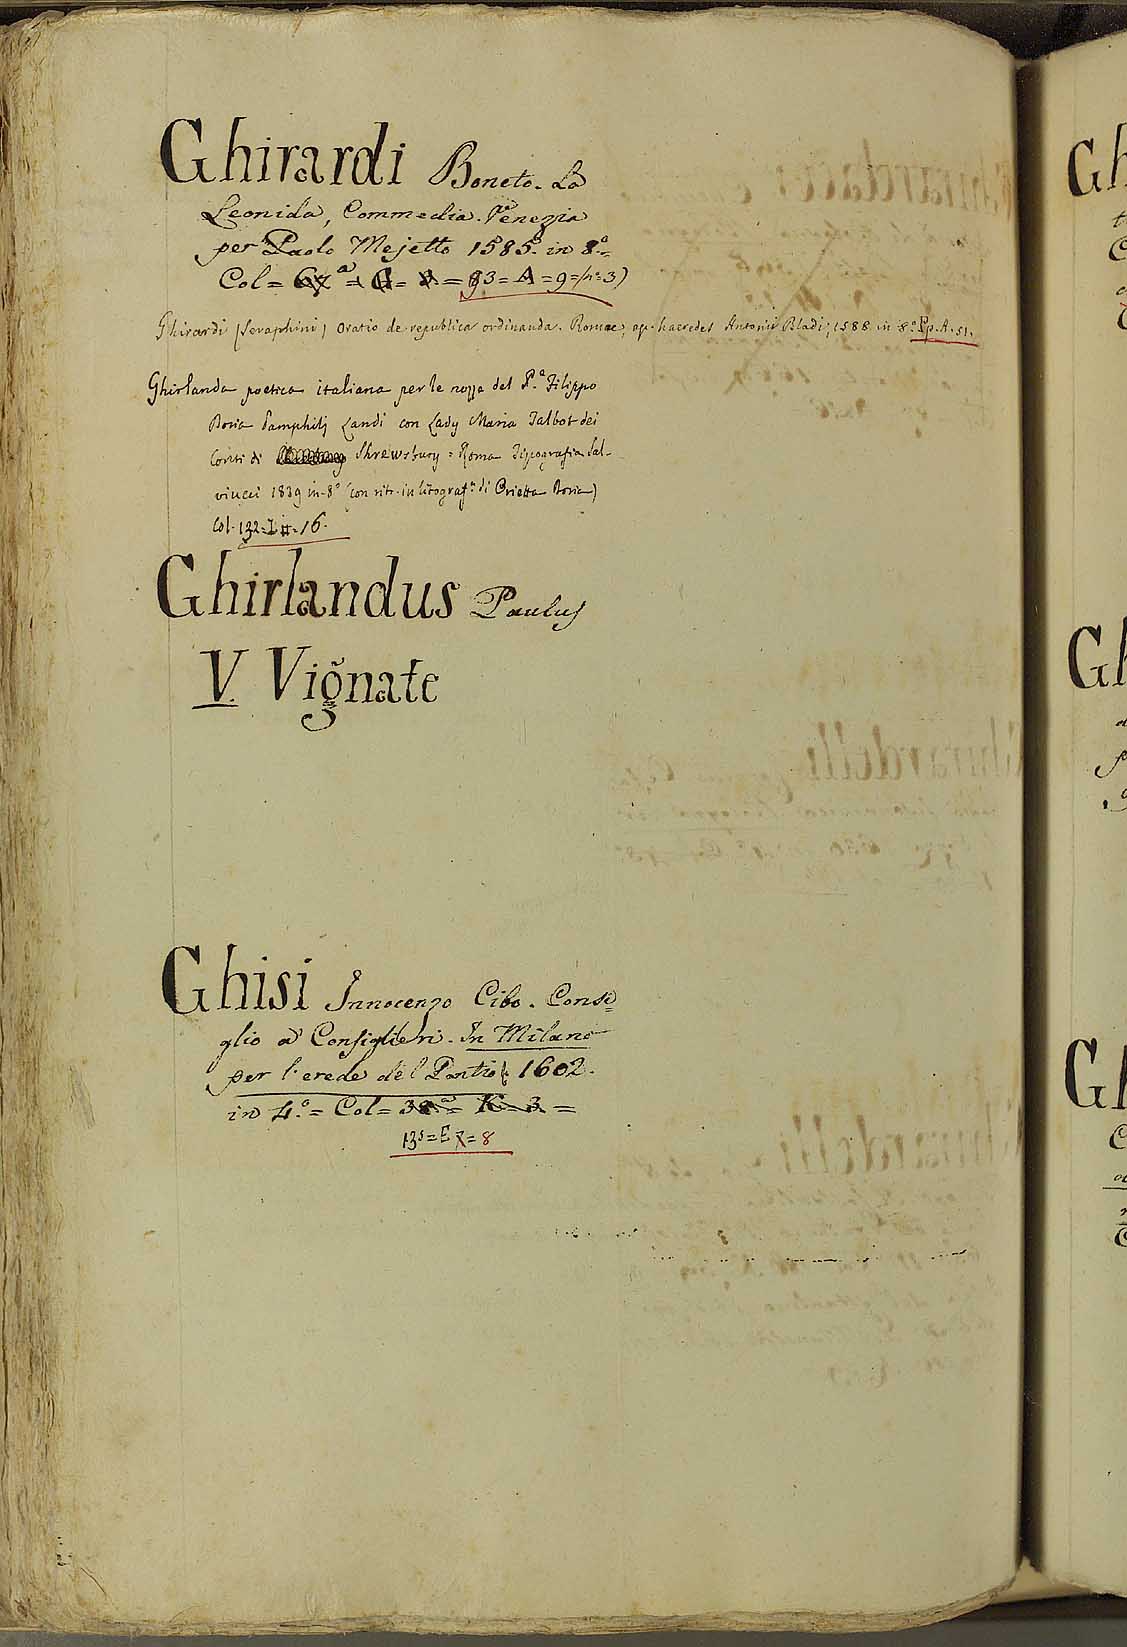 Ghirardi Boneto. La
Leonida, Commedia. Venezia
per Paolo Mejetto 1585. in 8.º
Col = 93 = A = 9 = (nº 3)
Ghirardi (Seraphini) Oratio de republica ordinanda. Romae, ap. haeredes Antonii Bladi, 1588 in 8º Ep. A. 51.
Ghirlanda poetica italiana per le nozze del P.e Filippo
Doria Pamphilj Landi con Lady Maria Talbot dei
Conti di Shrewsbury = Roma Tipografia Sal-
viucci 1839 in-8º (con ritr. in litograf.ª di Orietta Doria)
Col. 132 = I = 16.
Ghirlandus Paulus
V. Vignate
Ghisi Innocenzo Cibo. Consi=
glio a' Consiglieri. In Milano
per l'erede del Pontio 1602.
in 4.º = Col = 38.ª = K = 3 =
135 = E = 8
Gh
Gh
Gh